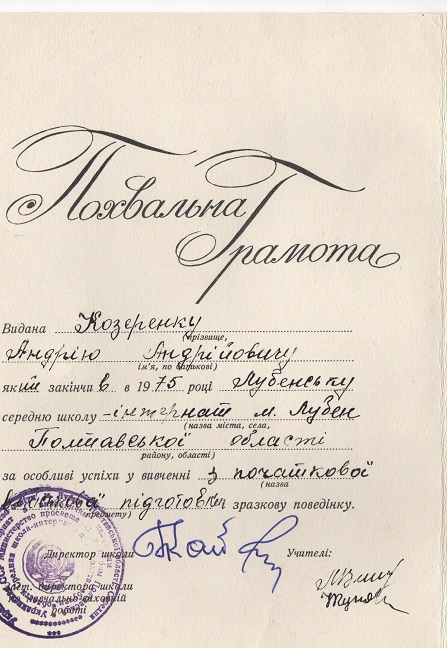 Похвальна
Грамота
Видана Козеренку
(прізвище,
Андрію Андрійовичу
ім'я, по батькові)
який закінчив в 1975 році Лубенську
середню школу -інтернат м. Лубен
(назва міста, села,
Полтавської області
району, області)
за особливі успіхи у вивченні з початкової
(назва
військової підготовки зразкову поведінку.
предмету)
Директор школи
Учителі:
Заст. директора школи
по навчально-виховній
роботі